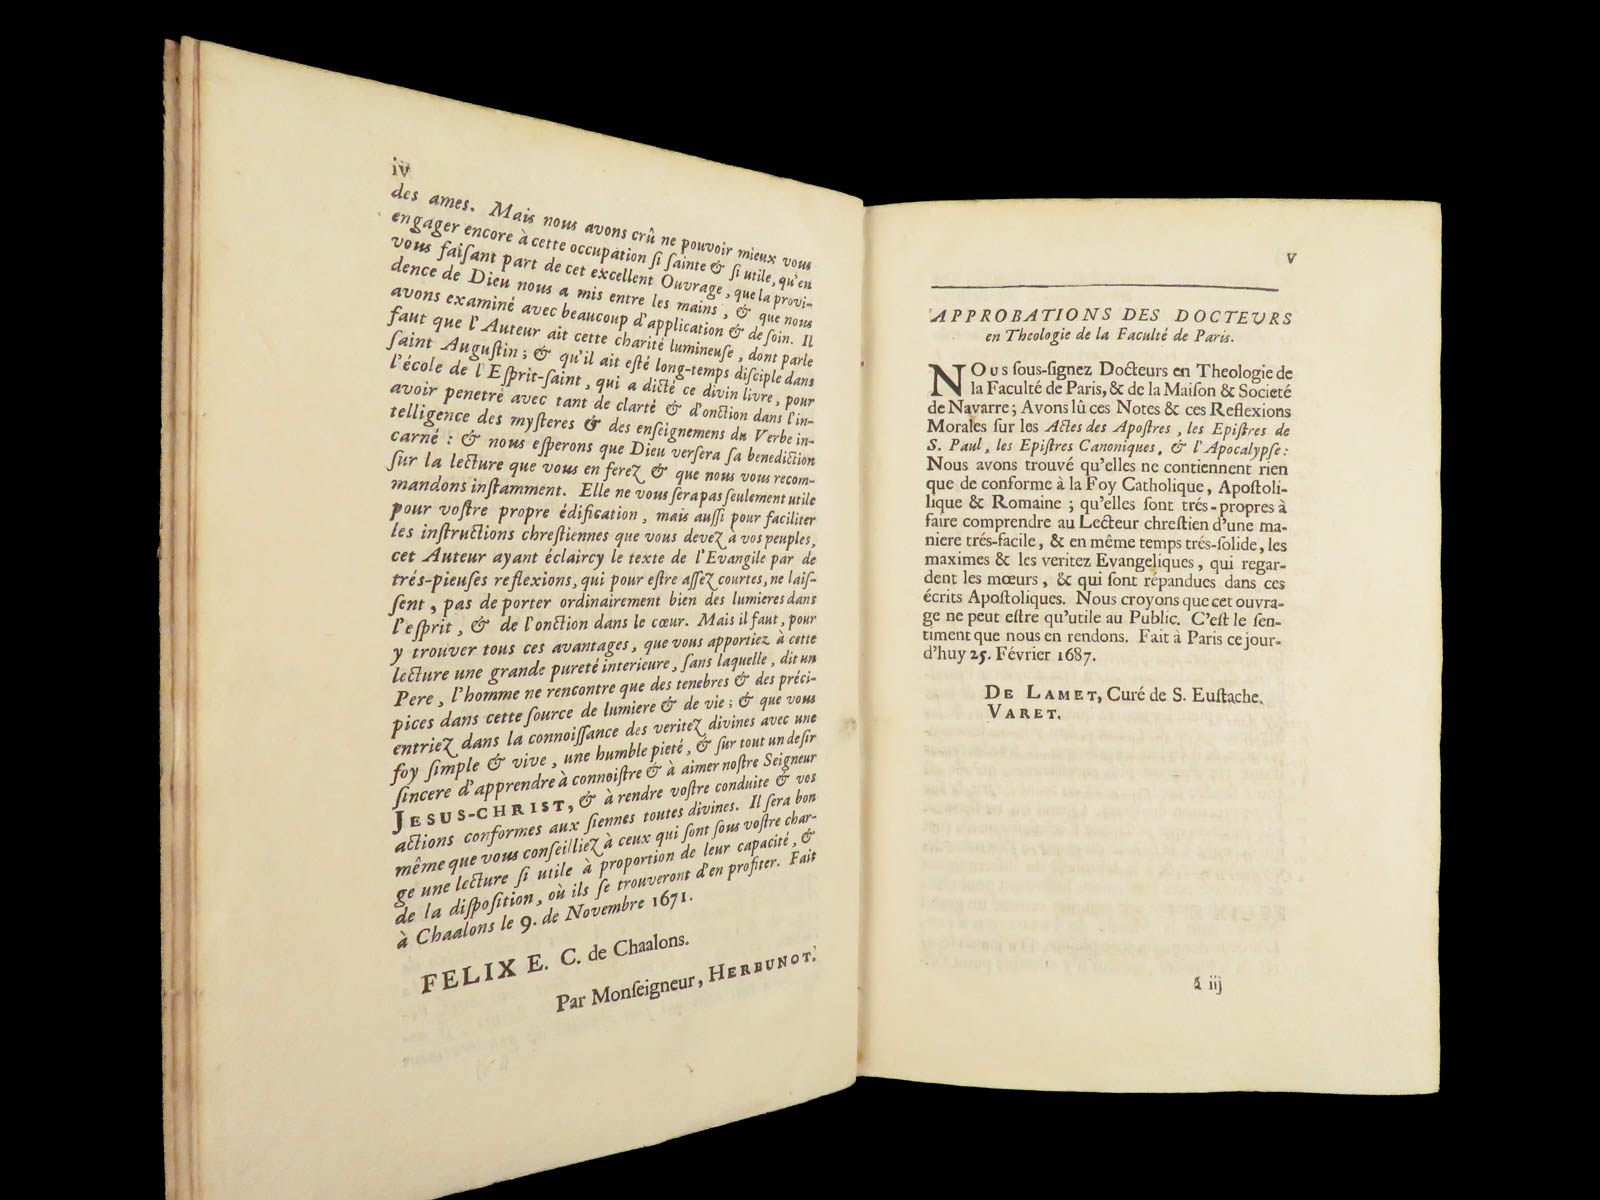 iv
des ames. Mais nous avons crû ne pouvoir mieux vous
engager encore à cette occupation ſi ſainte & ſi utile, qu'en
vous faiſant part de cet excellent Ouvrage, que la provi-
dence de Dieu nous a mis entre les mains, & que nous
avons examiné avec beaucoup d'application & de ſoin. Il
faut que l'Auteur ait cette charité lumineuſe, dont parle
ſaint Auguſtin; & qu'il ait eſté long-temps diſciple dans
l'école de l'Eſprit-ſaint, qui a dicté ce divin livre, pour
avoir penetré avec tant de clarté & d'onction dans l'in-
telligence des myſteres & des enſeignemens du Verbe in-
carné: & nous eſperons que Dieu verſera ſa benediction
ſur la lecture que vous en ferez & que nous vous recom-
mandons inſtamment. Elle ne vous ſera pas ſeulement utile
pour voſtre propre édification, mais auſſi pour faciliter
les inſtructions chreſtiennes que vous devez à vos peuples,
cet Auteur ayant éclaircy le texte de l'Evangile par de
trés-pieuſes reflexions, qui pour eſtre aſſez courtes, ne laiſ-
ſent, pas de porter ordinairement bien des lumieres dans
l'eſprit, & de l'onction dans le cœur. Mais il faut, pour
y trouver tous ces avantages, que vous apportiez à cette
lecture une grande pureté interieure, ſans laquelle, dit un
Pere, l'homme ne rencontre que des tenebres & des préci-
pices dans cette ſource de lumiere & de vie; & que vous
entriez dans la connoiſſance des veritez divines avec une
foy ſimple & vive, une humble pieté, & ſur tout un deſir
ſincere d'apprendre à connoiſtre & à aimer noſtre Seigneur
JESUS-CHRIST, & à rendre voſtre conduite & vos
actions conformes aux ſiennes toutes divines. Il ſera bon
même que vous conſeilliez à ceux qui ſont ſous voſtre char-
ge une lecture ſi utile à proportion de leur capacité, &
de la diſpoſition, où ils ſe trouveront d'en profiter. Fait
à Chaalons le 9. de Novembre 1671.
FELIX E. C. de Chaalons.
Par Monſeigneur, HERBUNOT.
v
APPROBATIONS DES DOCTEVRS
en Theologie de la Faculté de Paris.
NOus ſous-ſignez Docteurs en Theologie de
la Faculté de Paris, & de la Maiſon & Societé
de Navarre; Avons lû ces Notes & ces Reflexions
Morales ſur les Actes des Apoſtres, les Epiſtres de
S. Paul, les Epiſtres Canoniques, & l'Apocalypſe:
Nous avons trouvé qu'elles ne contiennent rien
que de conforme à la Foy Catholique, Apoſtoli-
lique & Romaine; qu'elles ſont trés-propres à
faire comprendre au Lecteur chreſtien d'une ma-
niere trés-facile, & en même temps trés-ſolide, les
maximes & les veritez Evangeliques, qui regar-
dent les mœurs, & qui ſont répandues dans ces
écrits Apoſtoliques. Nous croyons que cet ouvra-
ge ne peut eſtre qu'utile au Public. C'eſt le ſen-
timent que nous en rendons. Fait à Paris ce jour-
d'huy 25. Février 1687.
DE LAMET, Curé de S. Euſtache.
VARET.
iij